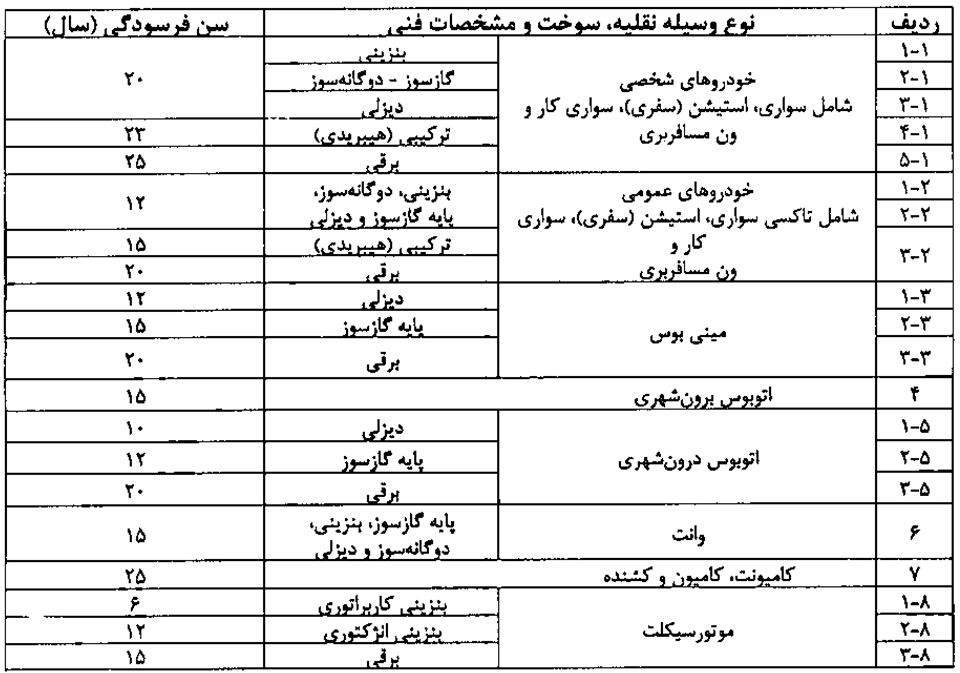 ردیف نوع وسیله نقلیه، سوخت و مشخصات فنی سن فرسودگی (سال)
۱-۱ بنزینی
۲-۱ خودروهای شخصی گازسوز - دوگانه‌سوز ۲۰
۳-۱ شامل سواری، استیشن (سفری)، سواری کار و دیزلی
۴-۱ ون مسافربری ترکیبی (هیبریدی) ۲۳
۵-۱ برقی ۲۵
۱-۲ خودروهای عمومی بنزینی، دوگانه‌سوز، ۱۲
۲-۲ شامل تاکسی سواری، استیشن (سفری)، سواری پایه گازسوز و دیزلی
کار و ترکیبی (هیبریدی) ۱۵
۳-۲ ون مسافربری برقی ۲۰
۱-۳ دیزلی ۱۲
۲-۳ مینی بوس پایه گازسوز ۱۵
۳-۳ برقی ۲۰
۴ اتوبوس برون‌شهری ۱۵
۱-۵ دیزلی ۱۰
۲-۵ اتوبوس درون‌شهری پایه گازسوز ۱۲
۳-۵ برقی ۲۰
۶ وانت پایه گازسوز، بنزینی، ۱۵
دوگانه‌سوز و دیزلی
۷ کامیونت، کامیون و کشنده ۲۵
۱-۸ بنزینی کاربراتوری ۶
۲-۸ موتورسیکلت بنزینی انژکتوری ۱۲
۳-۸ برقی ۱۵